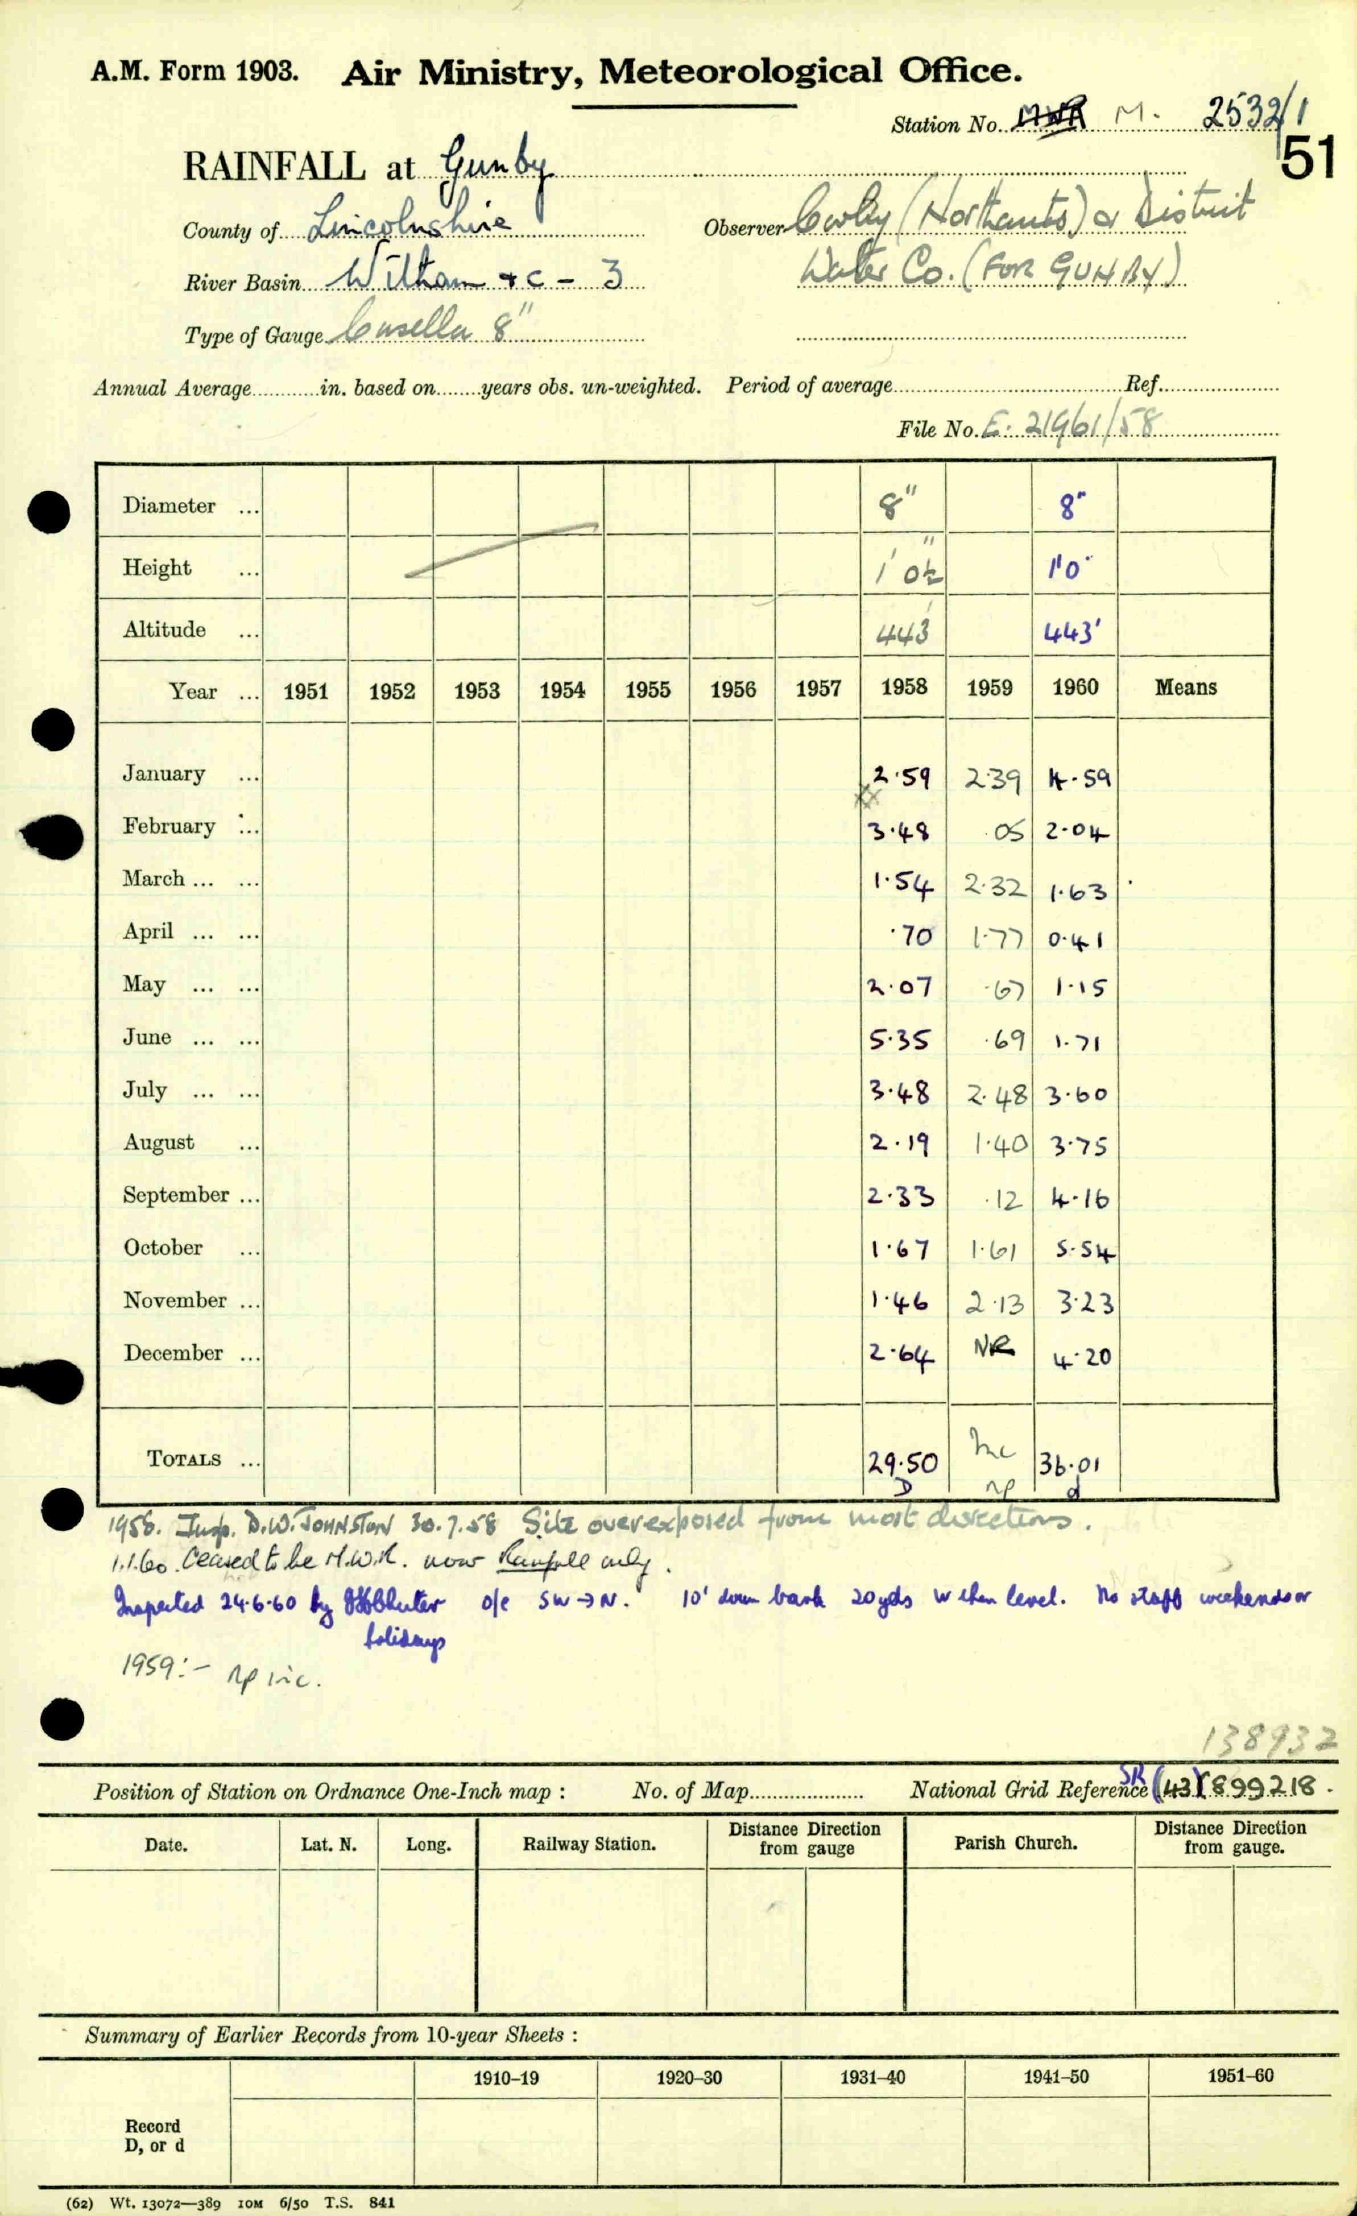 A.M. Form 1903. Air Ministry, Meteorological Office.
Station No. M. 2532/1
51
RAINFALL at Gunby
County of Lincolnshire Observer Corby (Northants) & District
River Basin Witham &c - 3 Water Co. (FOR GUNBY)
Type of Gauge Casella 8"
Annual Average in. based on years obs. un-weighted. Period of average Ref.
File No. E. 21961/58
Diameter ... 8" 8"
Height ... 1' 0½" 1'0"
Altitude ... 443' 443'
Year ... 1951 1952 1953 1954 1955 1956 1957 1958 1959 1960 Means
January ... 2.59 2.39 4.59
xx
February ... 3.48 .05 2.04
March ... ... 1.54 2.32 1.63
April ... ... .70 1.77 0.41
May ... ... 2.07 .67 1.15
June ... ... 5.35 .69 1.71
July ... ... 3.48 2.48 3.60
August ... 2.19 1.40 3.75
September ... 2.33 .12 4.16
October ... 1.67 1.61 5.54
November ... 1.46 2.13 3.23
December ... 2.64 NR 4.20
TOTALS ... 29.50 Inc 36.01
D np d
1958. Insp. D.W. JOHNSTON 30.7.58 Site overexposed from most directions.
1.1.60. Ceased to be M.W.R. now Rainfall only.
Inspected 24.6.60 by o/e SW→N. 10' down bank 20yds W then level. No staff weekends or
holidays
1959:- np inc.
138932
Position of Station on Ordnance One-Inch map : No. of Map National Grid Reference SK (43) 899218.
Date. Lat. N. Long. Railway Station. Distance Direction from gauge Parish Church. Distance Direction from gauge.
Summary of Earlier Records from 10-year Sheets :
1910–19 1920–30 1931–40 1941–50 1951–60
Record
D, or d
(62) Wt. 13072—389 10M 6/50 T.S. 841